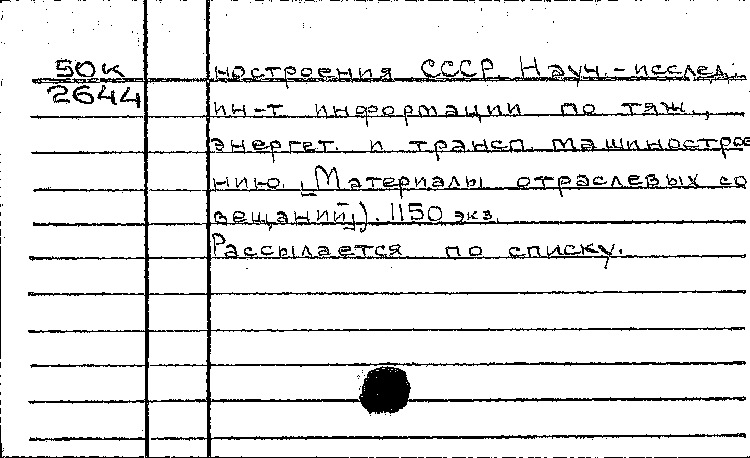 50к
2644
ностроения СССР. Науч.-исслед.
ин-т информации по тяж.,
энергет. и трансп. машинострое
нию. [Материалы отраслевых со
вещаний]). 1150 экз.
Рассылается по списку.